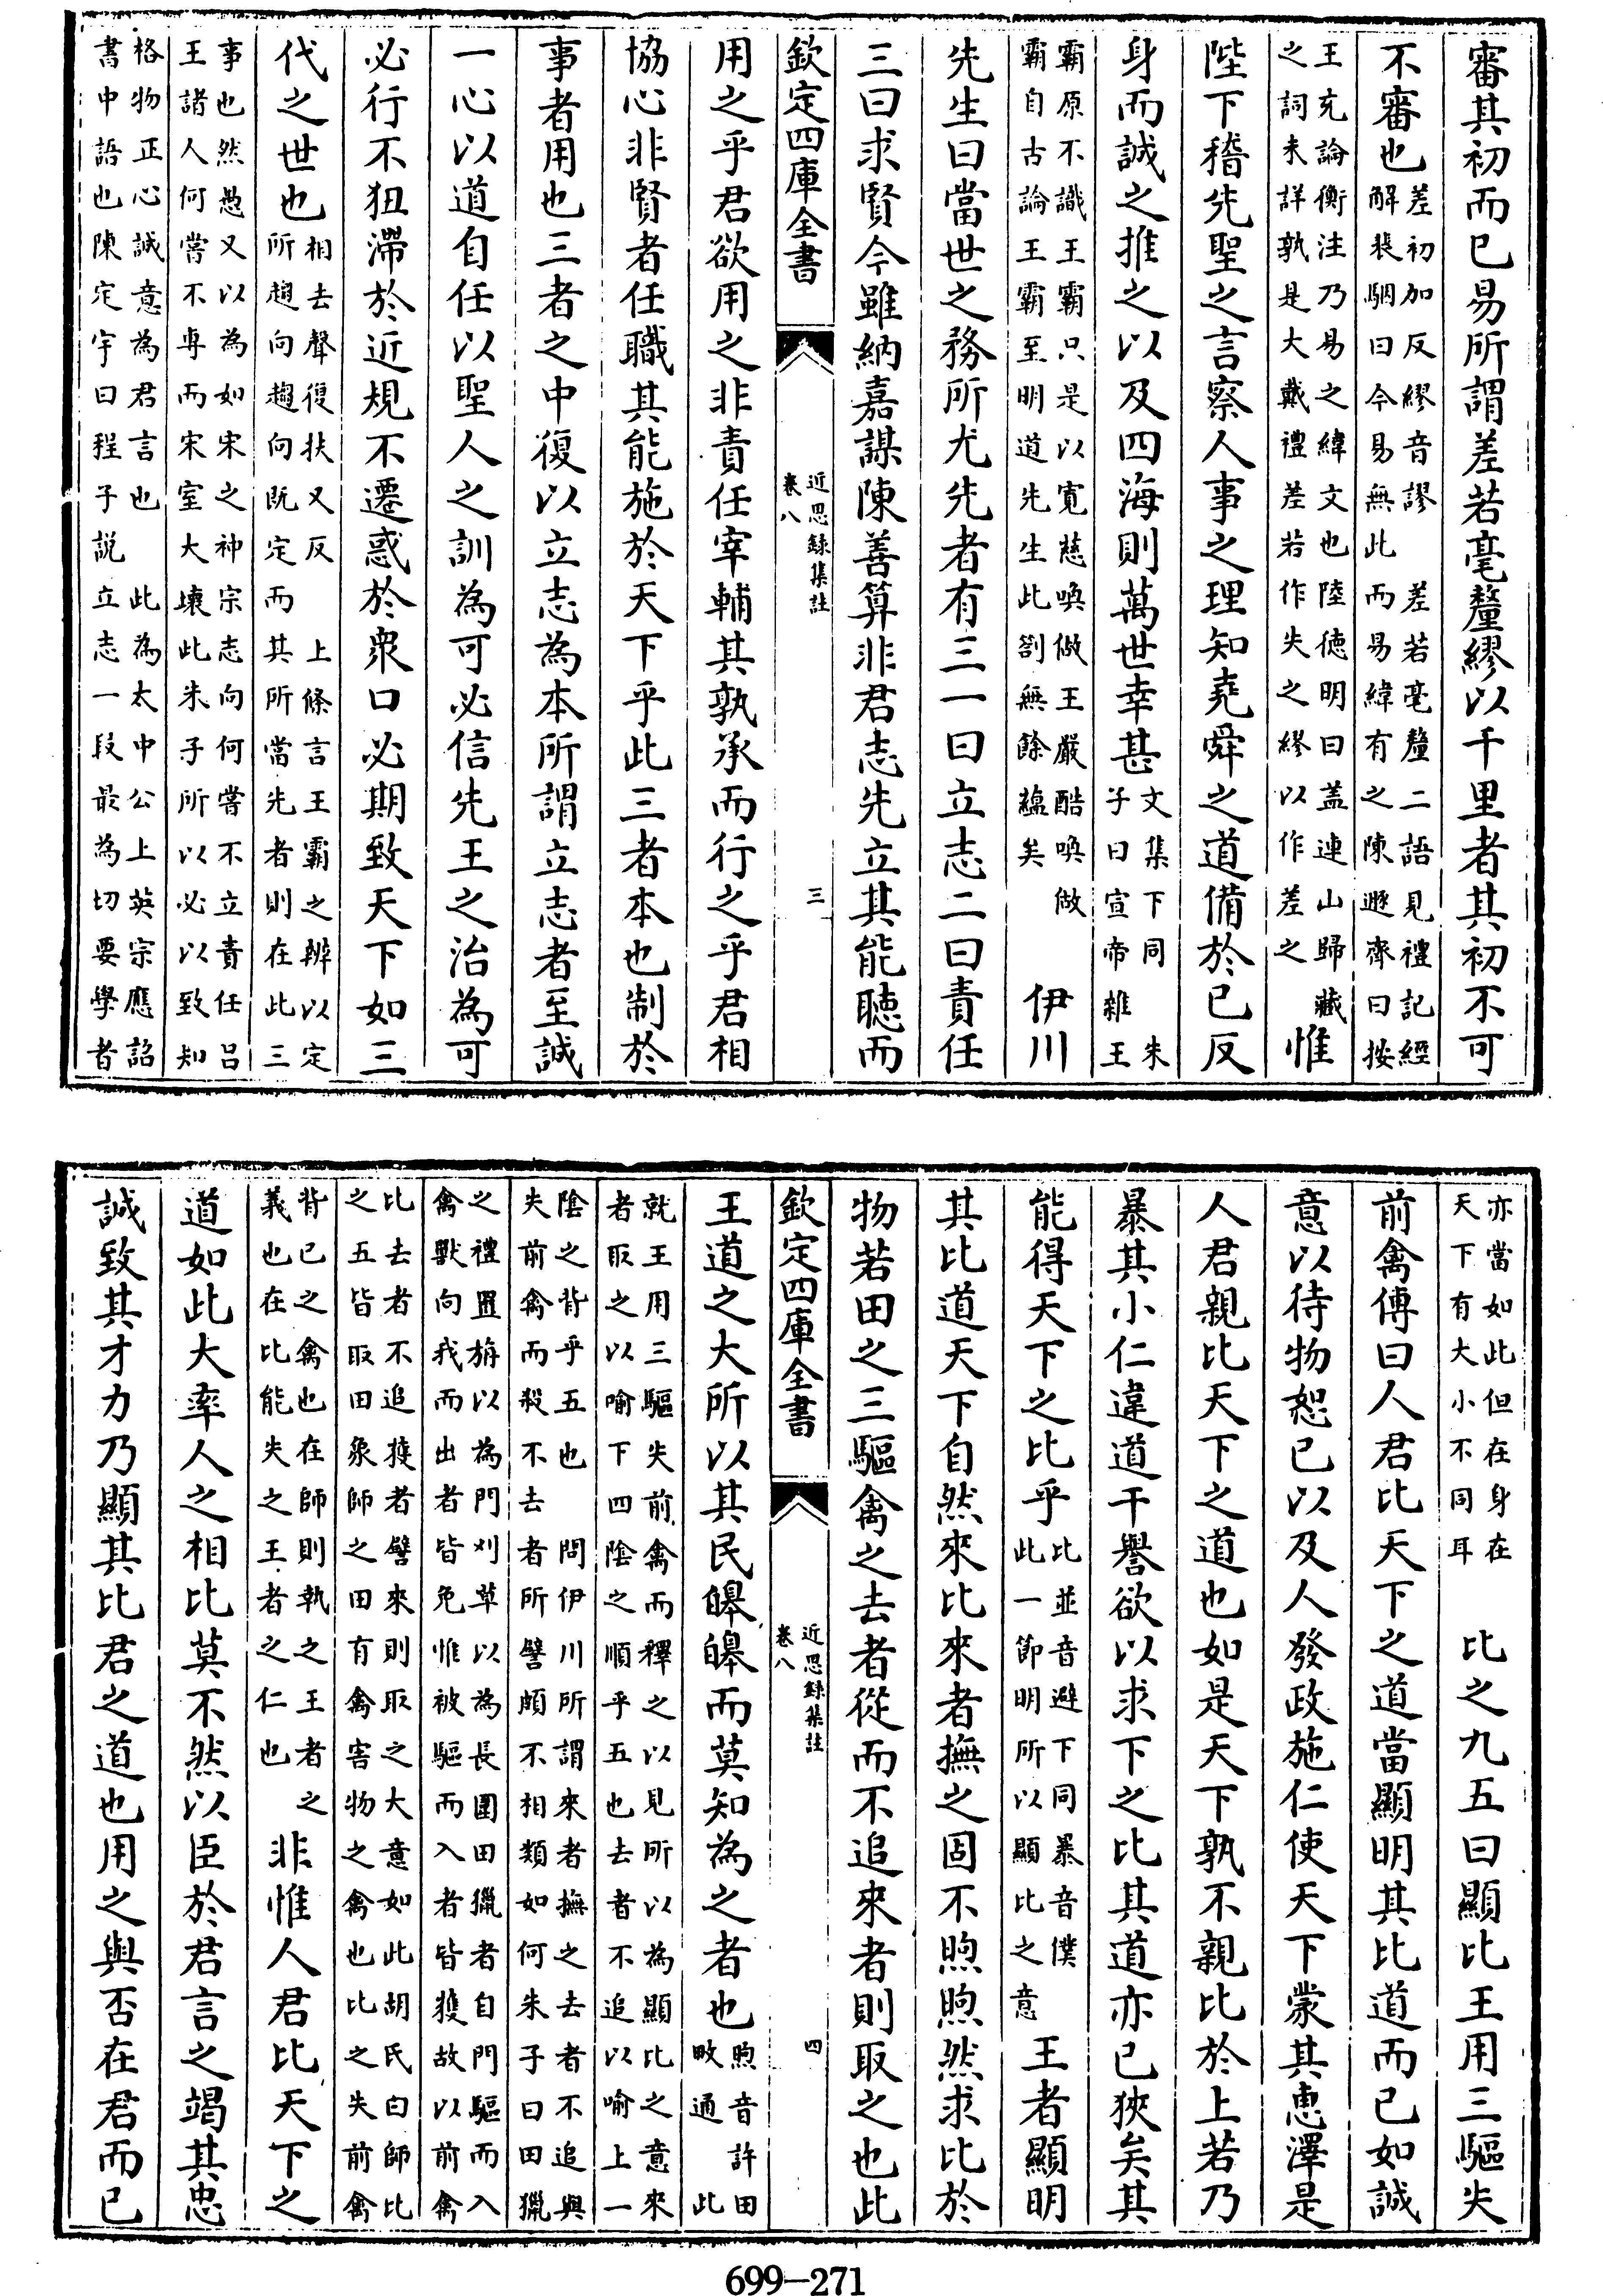 審其初而已易所謂差若毫釐繆以千里者其初不可
不審也差初加反繆音謬 差若毫釐二語見禮記經
解裴駰曰今易無此而易緯有之陳遯齋曰按
王充論衡注乃易之緯文也陸德明曰盖連山歸藏
之詞未詳孰是大戴禮差若作失之繆以作差之
惟
陛下稽先聖之言察人事之理知堯舜之道備於已反
身而誠之推之以及四海則萬世幸甚文集下同 朱
子曰宣帝雜王
霸原不識王霸只是以寬慈喚做王嚴酷喚做
霸自古論王霸至明道先生此劄無餘蘊矣
伊川
先生曰當世之務所尤先者有三一曰立志二曰責任
三曰求賢今雖納嘉謀陳善算非君志先立其能聽而
欽定四庫全書
近思錄集註
卷八
三
用之乎君欲用之非責任宰輔其孰承而行之乎君相
協心非賢者任職其能施於天下乎此三者本也制於
事者用也三者之中復以立志為本所謂立志者至誠
一心以道自任以聖人之訓為可必信先王之治為可
必行不狃滯於近規不遷惑於衆口必期致天下如三
代之世也相去聲復扶又反 上條言王霸之辨以定
所趨向趨向既定而其所當先者則在此三
事也然愚又以為如宋之神宗志向何嘗不立責任呂
王諸人何嘗不専而宋室大壞此朱子所以必以致知
格物正心誠意為君言也 此為太中公上英宗應詔
書中語也陳定宇曰程子説立志一段最為切要學者
亦當如此但在身在
天下有大小不同耳
比之九五曰顯比王用三驅失
前禽傳曰人君比天下之道當顯明其比道而已如誠
意以待物恕已以及人發政施仁使天下蒙其惠澤是
人君親比天下之道也如是天下孰不親比於上若乃
暴其小仁違道干譽欲以求下之比其道亦已狹矣其
能得天下之比乎比並音避下同 暴音僕
此一節明所以顯比之意
王者顯明
其比道天下自然來比來者撫之固不煦煦然求比於
物若田之三驅禽之去者從而不追來者則取之也此
欽定四庫全書
近思錄集註
卷八
四
王道之大所以其民皞皞而莫知為之者也煦音許田
畋通 此
就王用三驅失前禽而釋之以見所以為顯比之意來
者取之以喻下四陰之順乎五也去者不追以喻上一
陰之背乎五也 問伊川所謂來者撫之去者不追與
失前禽而殺不去者所譬頗不相類如何朱子曰田獵
之禮置旃以為門刈草以為長圍田獵者自門驅而入
禽獸向我而出者皆免惟被驅而入者皆獲故以前禽
比去者不追獲者譬來則取之大意如此胡氏曰師比
之五皆取田象師之田有禽害物之禽也比之失前禽
背已之禽也在師則執之王者之
義也在比能失之王者之仁也
非惟人君比天下之
道如此大率人之相比莫不然以臣於君言之竭其忠
誠致其才力乃顯其比君之道也用之與否在君而已
699—271